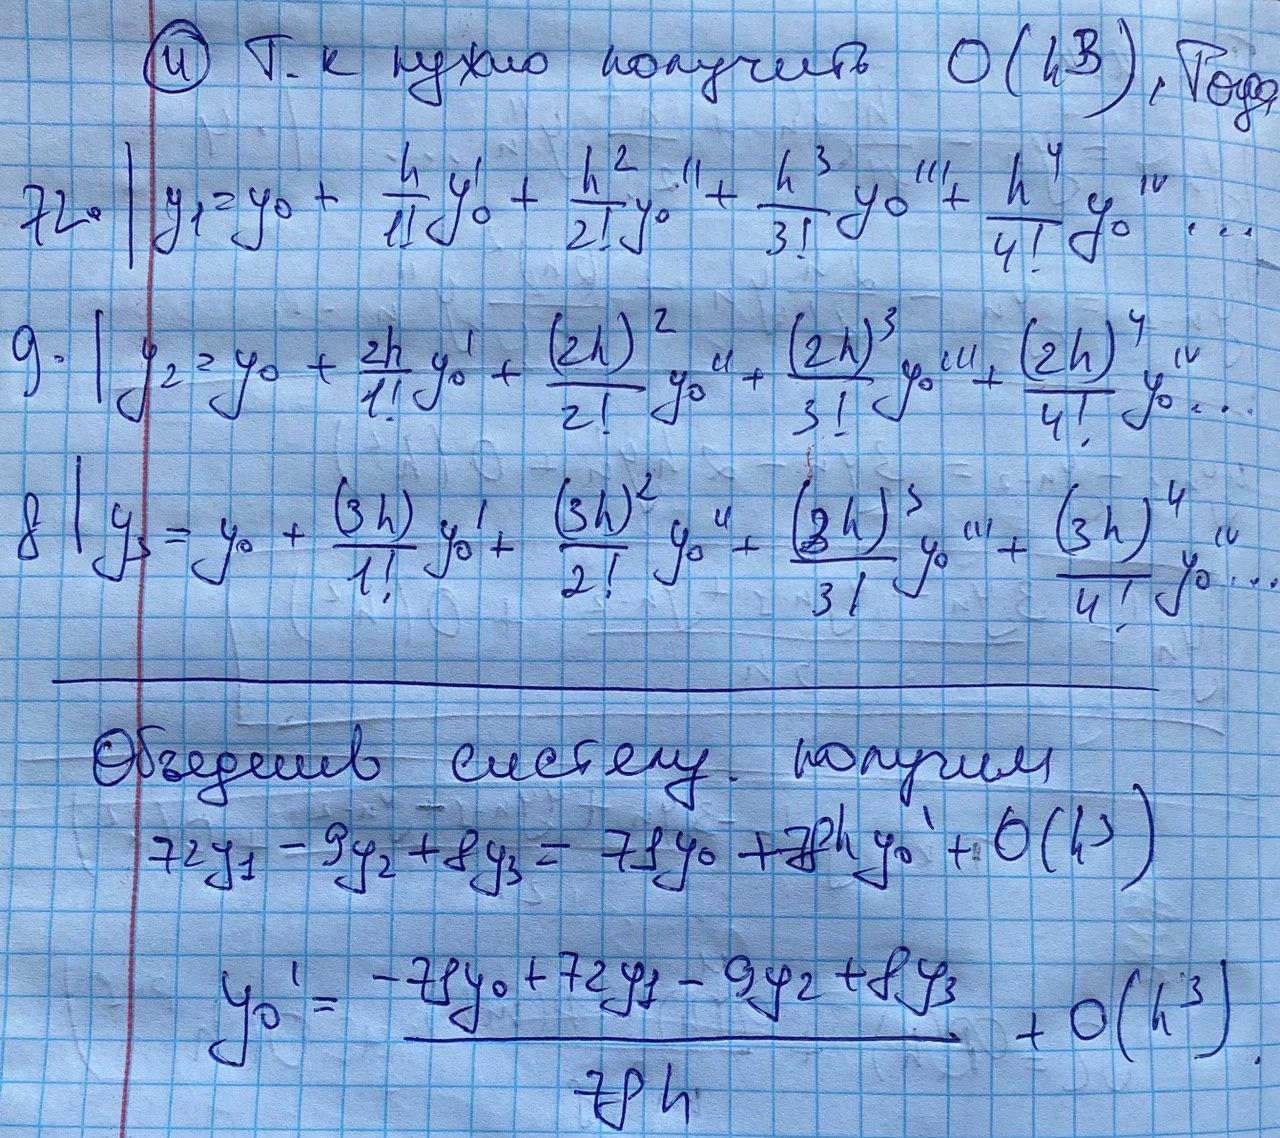 и) Т.к нужно получить O(h³), Тогда
72· | y₁ = y₀ + h/1! y₀' + h²/2! y₀'' + h³/3! y₀''' + h⁴/4! y₀ᴵⱽ ...
9· | y₂ = y₀ + 2h/1! y₀' + (2h)²/2! y₀'' + (2h)³/3! y₀''' + (2h)⁴/4! y₀ᴵⱽ ...
8 | y₃ = y₀ + (3h)/1! y₀' + (3h)²/2! y₀'' + (3h)³/3! y₀''' + (3h)⁴/4! y₀ᴵⱽ ...
Объединив систему. получим
72y₁ - 9y₂ + 8y₃ = 78y₀ + 78h y₀' + O(h³)
y₀' = (-78y₀ + 72y₁ - 9y₂ + 8y₃)/78h + O(h³).